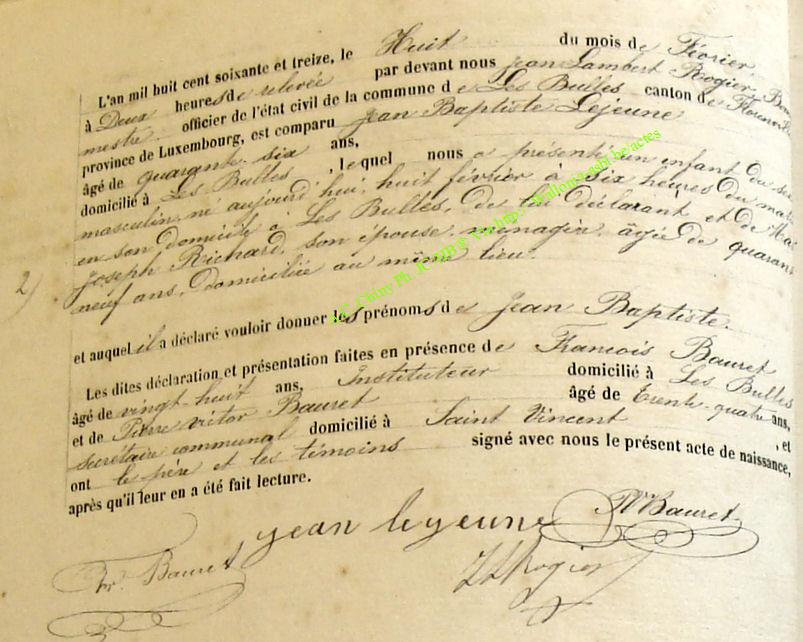 L'an mil huit cent soixante et treize, le Huit du mois de Février
à Deux heures de relevée par devant nous Jean Lambert Rogier, Bourg-
mestre officier de l'état civil de la commune de Les Bulles canton de Florenville
province de Luxembourg, est comparu Jean Baptiste Lejeune
âgé de quarante-six ans,
domicilié à Les Bulles, lequel nous a présenté un enfant du sexe
masculin, né aujourd'hui, huit février à six heures du matin
en son domicile à Les Bulles, de lui déclarant et de
Joseph Richard, son épouse, ménagère, âgée de quarante
neuf ans, domiciliée au même lieu.
2)
et auquel il a déclaré vouloir donner les prénoms de Jean Baptiste.
Les dites déclaration et présentation faites en présence de François Bauret
âgé de vingt-huit ans, Instituteur domicilié à Les Bulles
et de Pierre Victor Bauret âgé de trente-quatre ans,
secrétaire communal domicilié à Saint Vincent, et
ont le père et les témoins signé avec nous le présent acte de naissance,
après qu'il leur en a été fait lecture.
jean lejeune PV Bauret
Fr. Bauret JLRogier